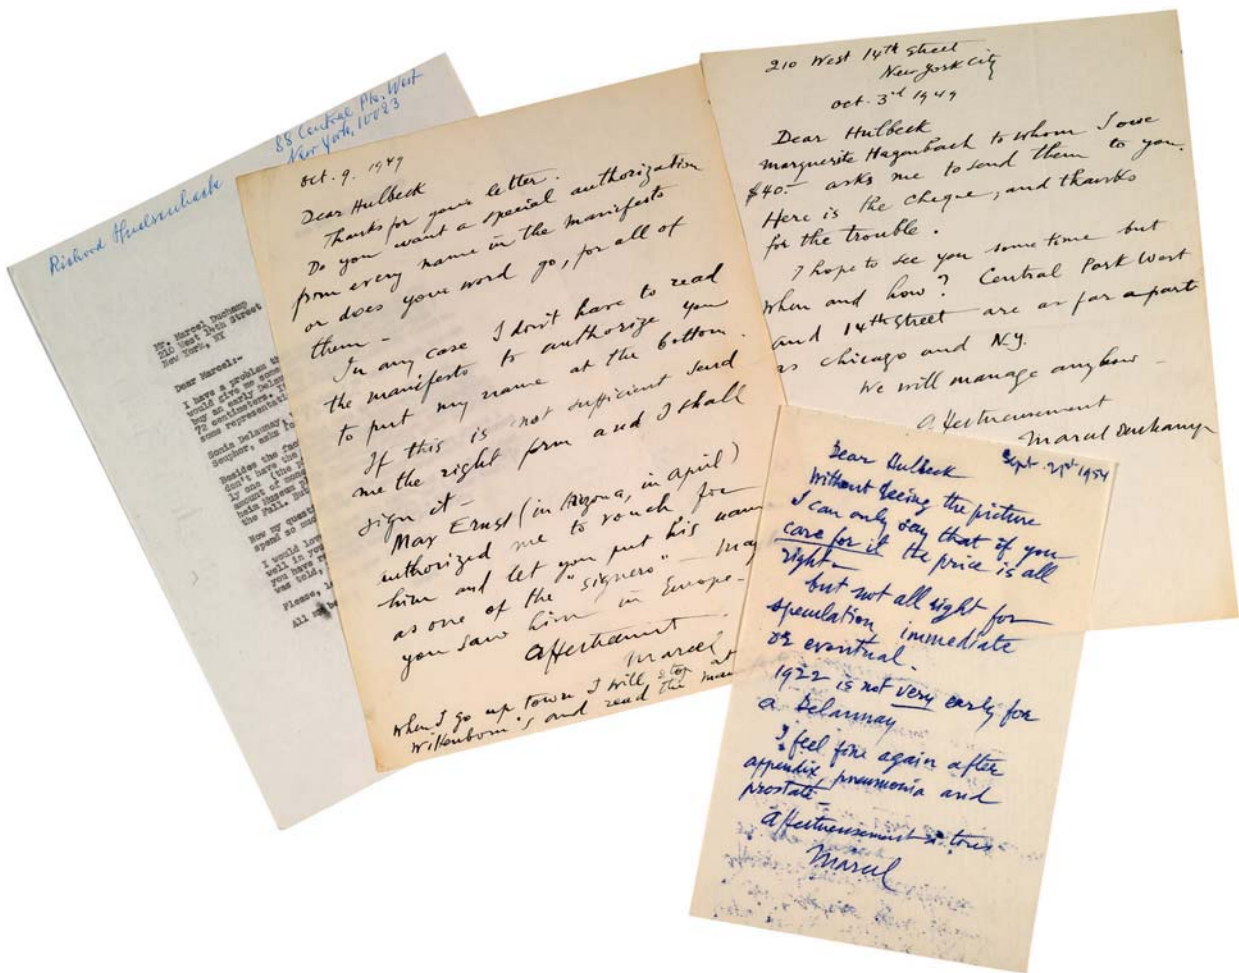 88 Central Pk. West
New York, 10023
Richard Huelsenbeck
Mr. Marcel Duchamp
210 West 14th Street
New York, NY
Dear Marcel:-
I have a problem th
would give me some
buy an early Delau
72 centimeters. I
some representati
Sonia Delaunay,
Seupher, asks fo
Besides the fac
don't have the
ly one (the p
amount of mon
heim Museum p
the Fall. But
Now my quest
spend so muc
I would lov
well in you
you have r
was told,
Please, l
All my be
oct. 9. 1949
Dear Hulbeck
Thanks for your letter.
Do you want a special authorization
from every name in the manifesto
or does your word go, for all of
them –
In any case I don't have to read
the manifesto to authorize you
to put my name at the bottom.
If this is not sufficient send
me the right form and I shall
sign it –
Max Ernst (in Arizona, in april)
authorized me to vouch for
him and let you put his name
as one of the "signers" – may
you saw him in Europe –
Affectueust
Marcel
when I go up town I will stop at
Wittenborn's and read the man
210 West 14th Street
New York City
oct. 3rd 1949
Dear Hulbeck
Marguerite Hagenbach to whom I owe
$40.– asks me to send them to you.
Here is the cheque, and thanks
for the trouble.
I hope to see you some time but
when and how? Central Park West
and 14th Street are as far apart
as Chicago and N.Y.
We will manage anyhow –
Affectueusement
Marcel Duchamp
Sept. 21st 1954
Dear Hulbeck
Without seeing the picture
I can only say that if you
care for it the price is all
right –
but not all right for
speculation immediate
or eventual.
1922 is not very early for
a Delaunay
I feel fine again after
appendix, pneumonia and
prostate –
Affectueusement à tous
Marcel